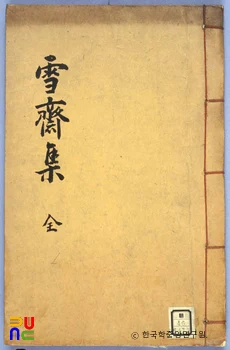 雪齋集
全
© 한국학중앙연구원